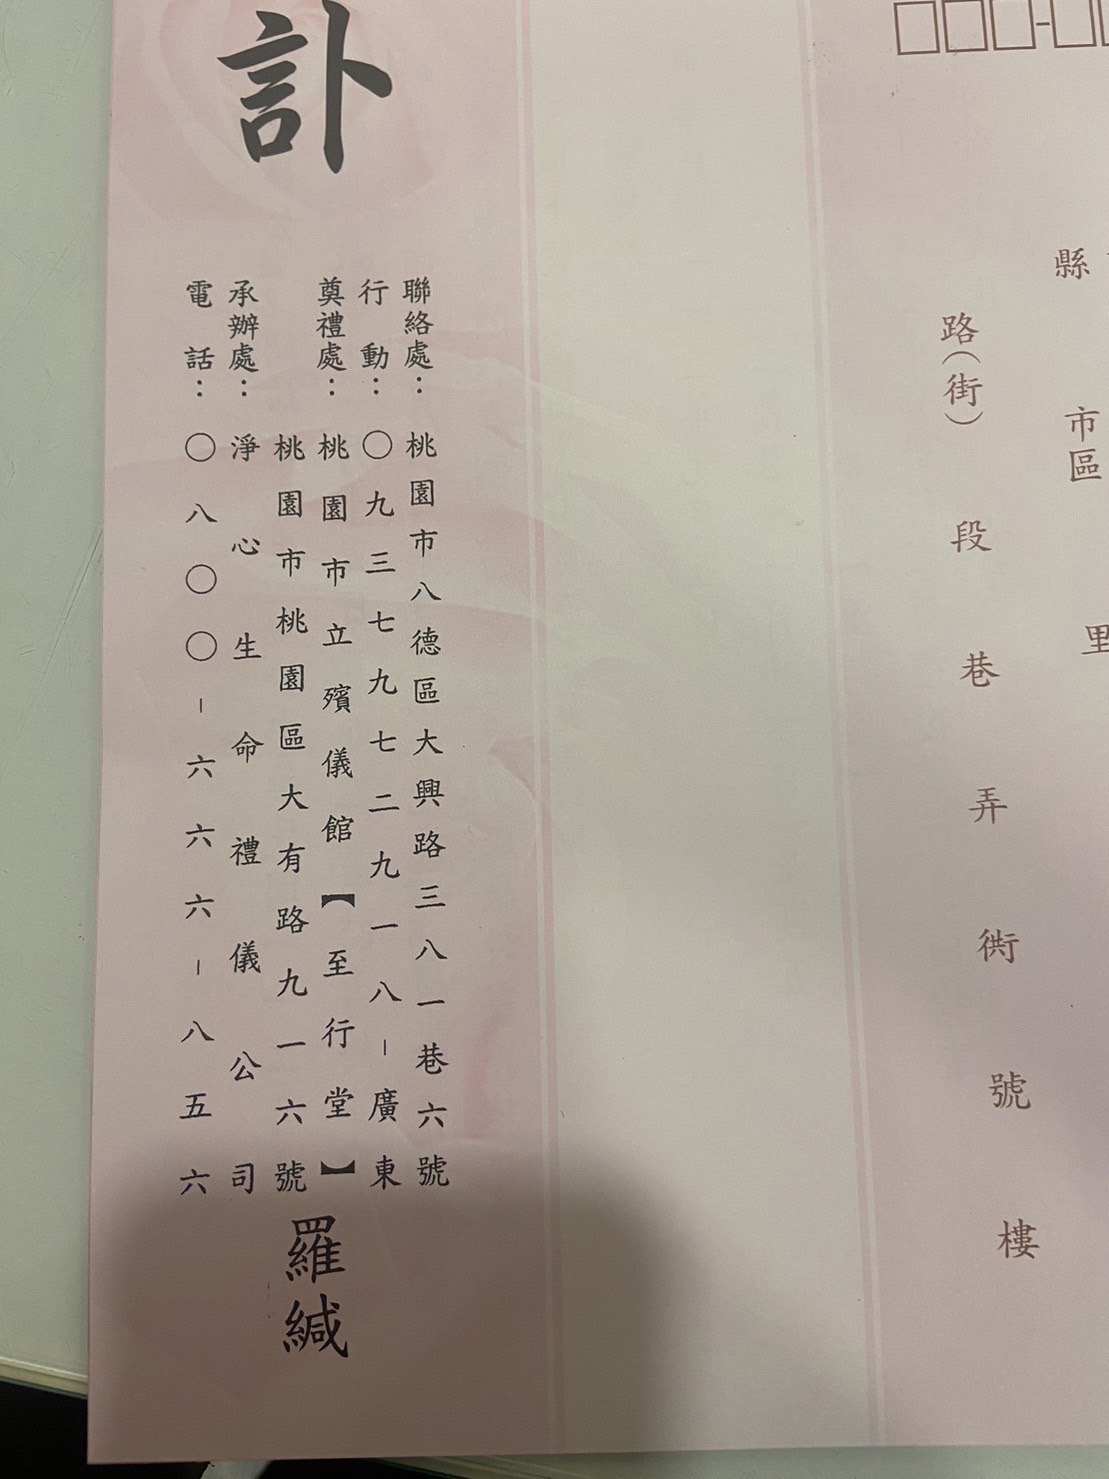 縣
市區
里
路(街)
段
巷
弄
衖
號
樓
訃
聯絡處:桃園市八德區大興路三八一巷六號
行動:〇九三七九七二九一八-廣東
奠禮處:桃園市立殯儀館【至行堂】
桃園市桃園區大有路九一六號
承辦處:淨心生命禮儀公司
電話:〇八〇〇-六六六-八五六
羅緘